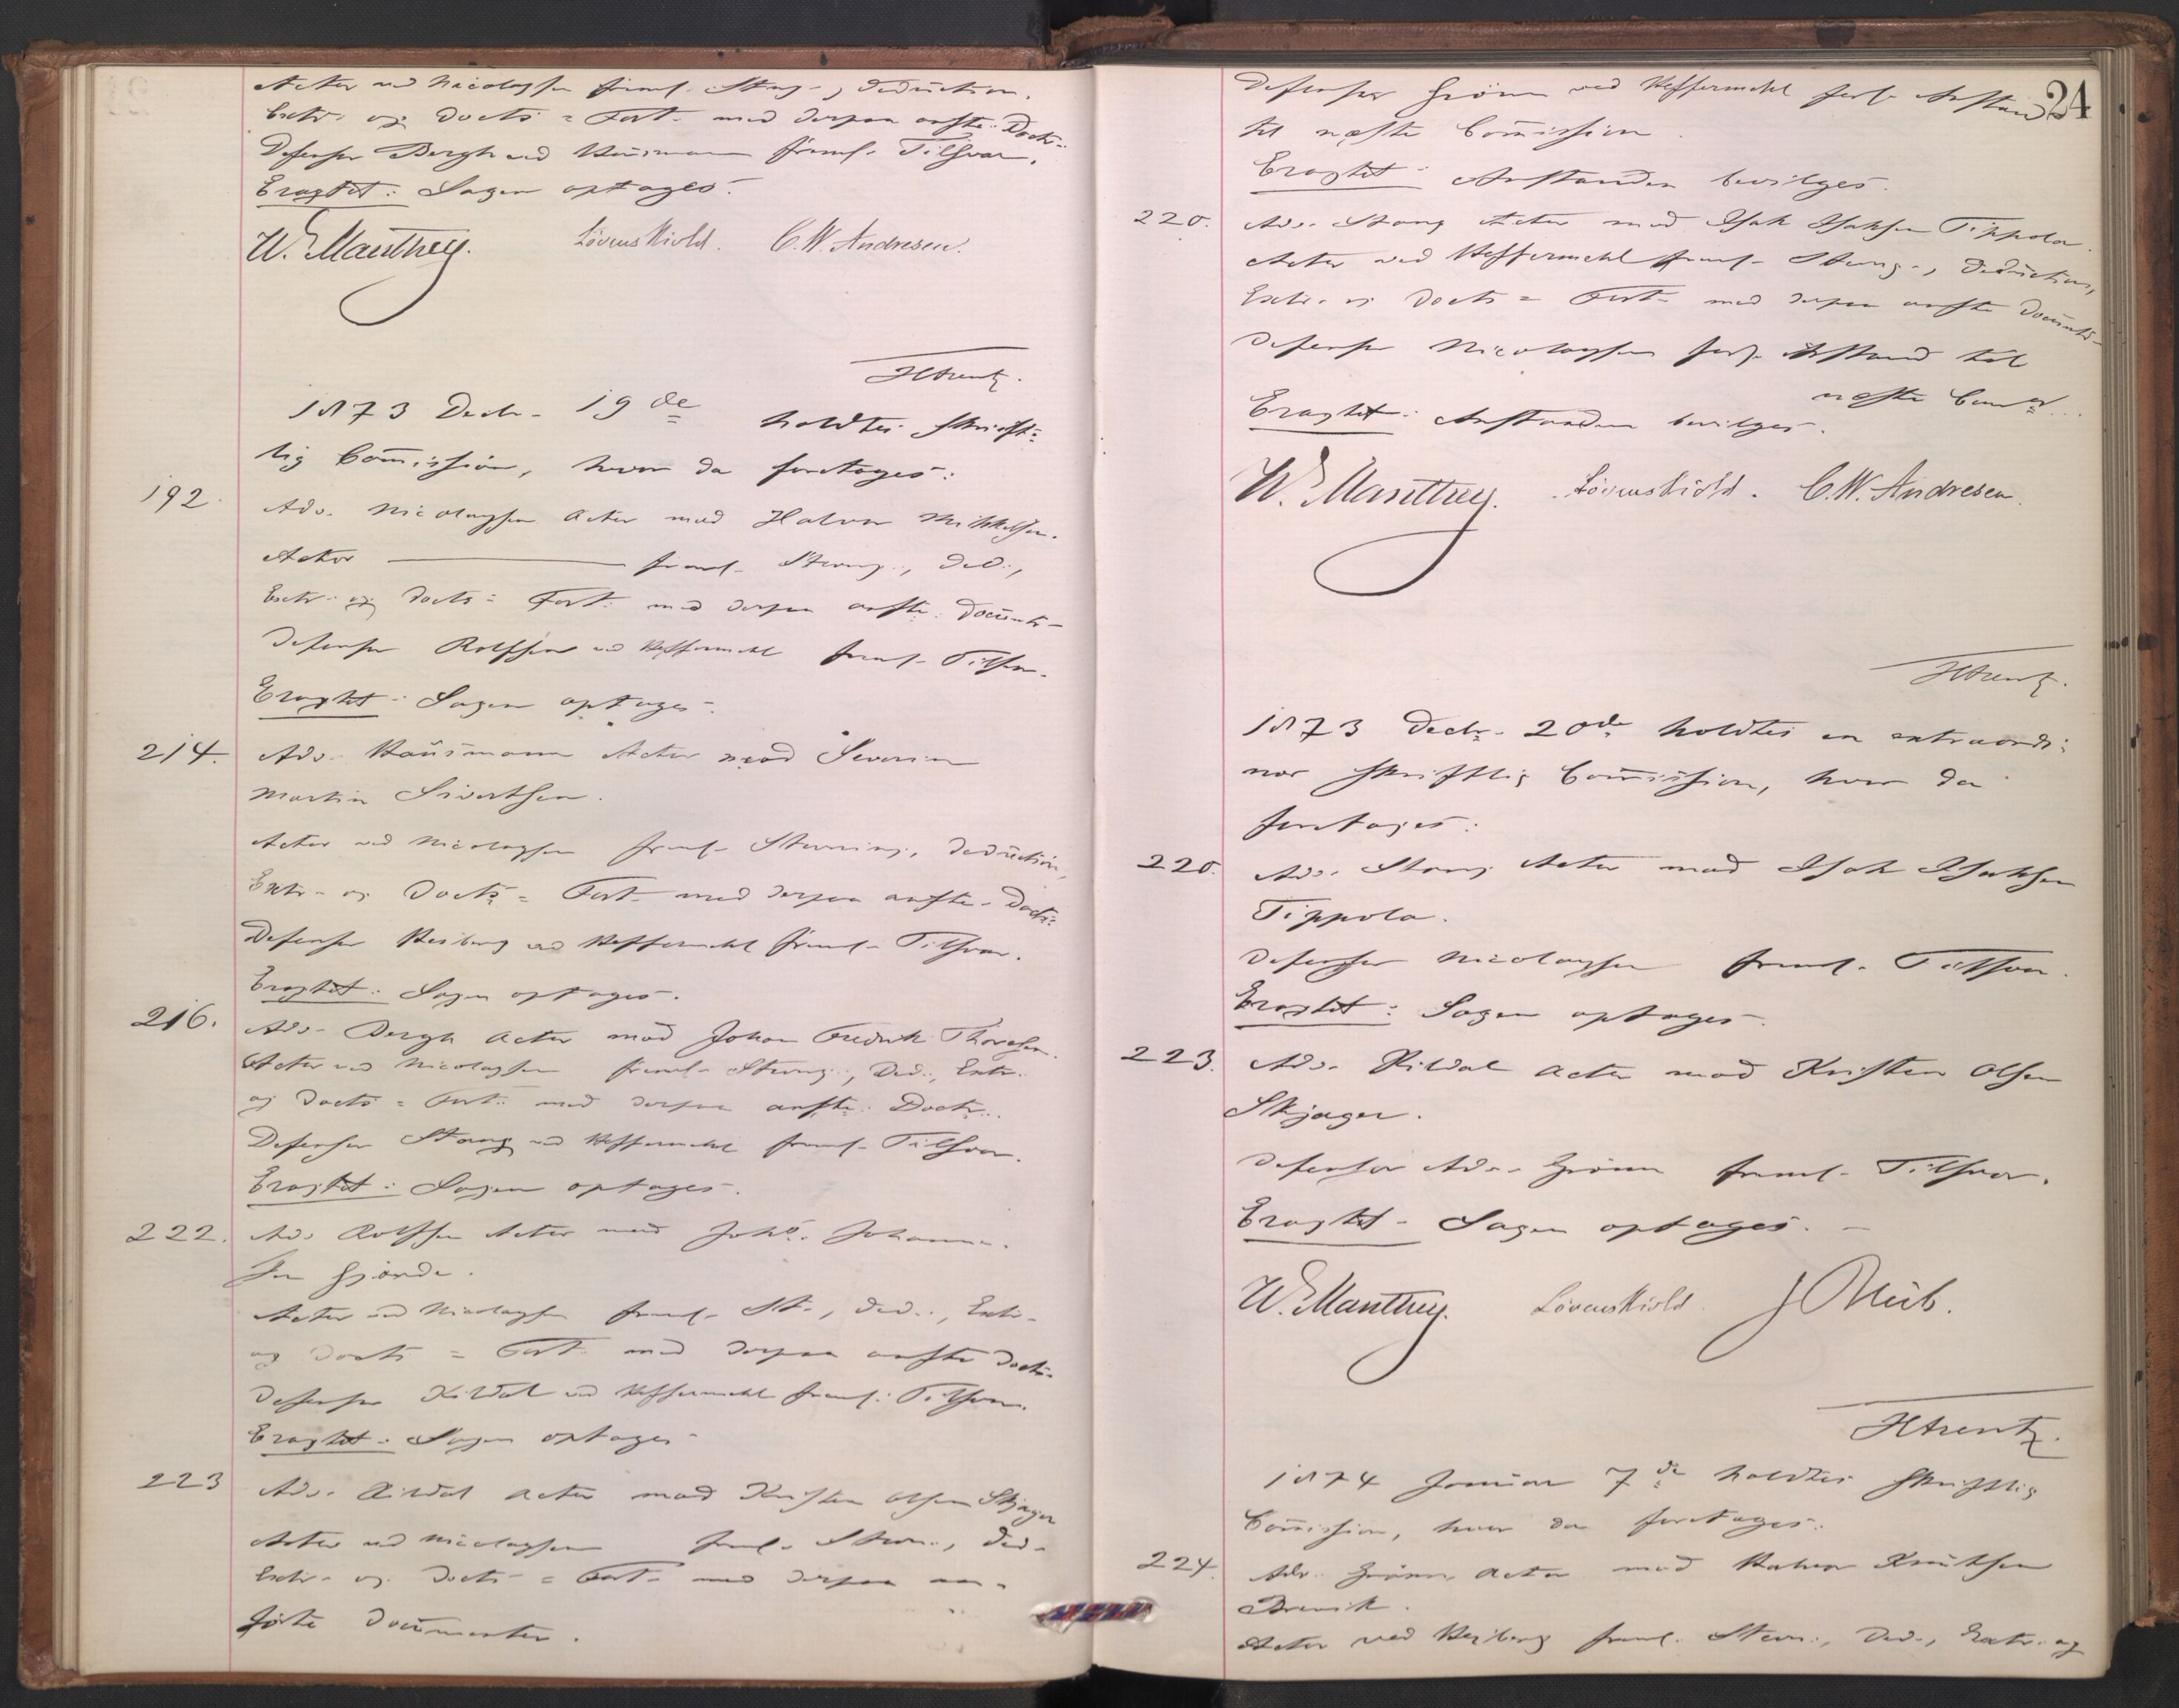 Actor ved Nicolaysen freml. Stvng., Deduction,
Extr. og Docts = Fort. med derpaa anfte. Doctr.
Defensor Bergh ved Hansmann freml. Tilsvar.
Eragtet: Sagen optages.
W. E. Manthey. Løvenskiold. C. W. Andresen.
HArentz.
1873 Decbr. 19de holdtes skrift=
lig Commission, hvor da foretoges:
192. Adv. Nicolaysen Actor mod Halvor Mikkelsen.
Actor ——— freml. Stevng., Ded.,
Extr. og Docts = Fort. med derpaa anfte. Documtr.
Defensor Rolfsen ved Heffermehl freml. Tilsvar.
Eragtet: Sagen optages.
214. Adv. Hansmann Actor mod Severin
Martin Sivertsen.
Actor ved Nicolaysen freml. Stevning, Deduction,
Extr. og Docts = Fort. med derpaa anfte. Doctr.
Defensor Heiberg ved Heffermehl freml. Tilsvar.
Eragtet: Sagen optages.
216. Adv. Bergh Actor mod Johan Fredrik Thoresen.
Actor ved Nicolaysen freml. Stevng., Ded., Extr.
og Docts = Fort. med derpaa anfte. Doctr.
Defensor Stang ved Heffermehl freml. Tilsvar.
Eragtet: Sagen optages.
222. Adv. Rolfsen Actor mod Johs. Johannes=
sen Gjørde.
Actor ved Nicolaysen freml. St., Ded., Extr.
og Docts = Fort. med derpaa anfte Doctr.
Defensor Kildal ved Heffermehl freml. Tilsvar.
Eragtet: Sagen optages
223 Adv. Kildal Actor mod Kristen Olsen Skjager
Actor ved Nicolaysen freml. Stevn., Ded.
Extr. og Docts = Fort. med derpaa an=
førte Documenter.
24
Defensor Grønn ved Heffermehl forl. Anstand
til næste Commission.
Eragtet: Anstanden bevilges.
220. Adv. Stang Actor mod Isak Isaksen Tippola.
Actor ved Heffermehl freml. Stevng., Deduction,
Extr. og Docts = Fort. med derpaa anfte Documtr.
Defensor Nicolaysen forl. Anstand til
næste Commn.
Eragtet: Anstanden bevilges.
W. E. Manthey. Løvenskiold. C. W. Andresen.
HArentz.
1873 Decbr. 20de holdtes en extraordi=
nær skriftlig Commission, hvor da
foretoges:
220. Adv. Stang Actor mod Isak Isaksen
Tippola.
Defensor Nicolaysen freml. Tilsvar.
Eragtet: Sagen optages.
223. Adv. Kildal Actor mod Kristen Olsen
Skjager.
Defensor Adv. Grønn freml. Tilsvar.
Eragtet. Sagen optages.
W. E. Manthey. Løvenskiold.
HArentz.
1874 Januar 7de holdtes skriftlig
Commission, hvor da foretoges:
224. Adv. Grønn Actor mod Halvor Knutsen
Brevik.
Actor ved Heiberg freml. Stevn., Ded., Extr. og